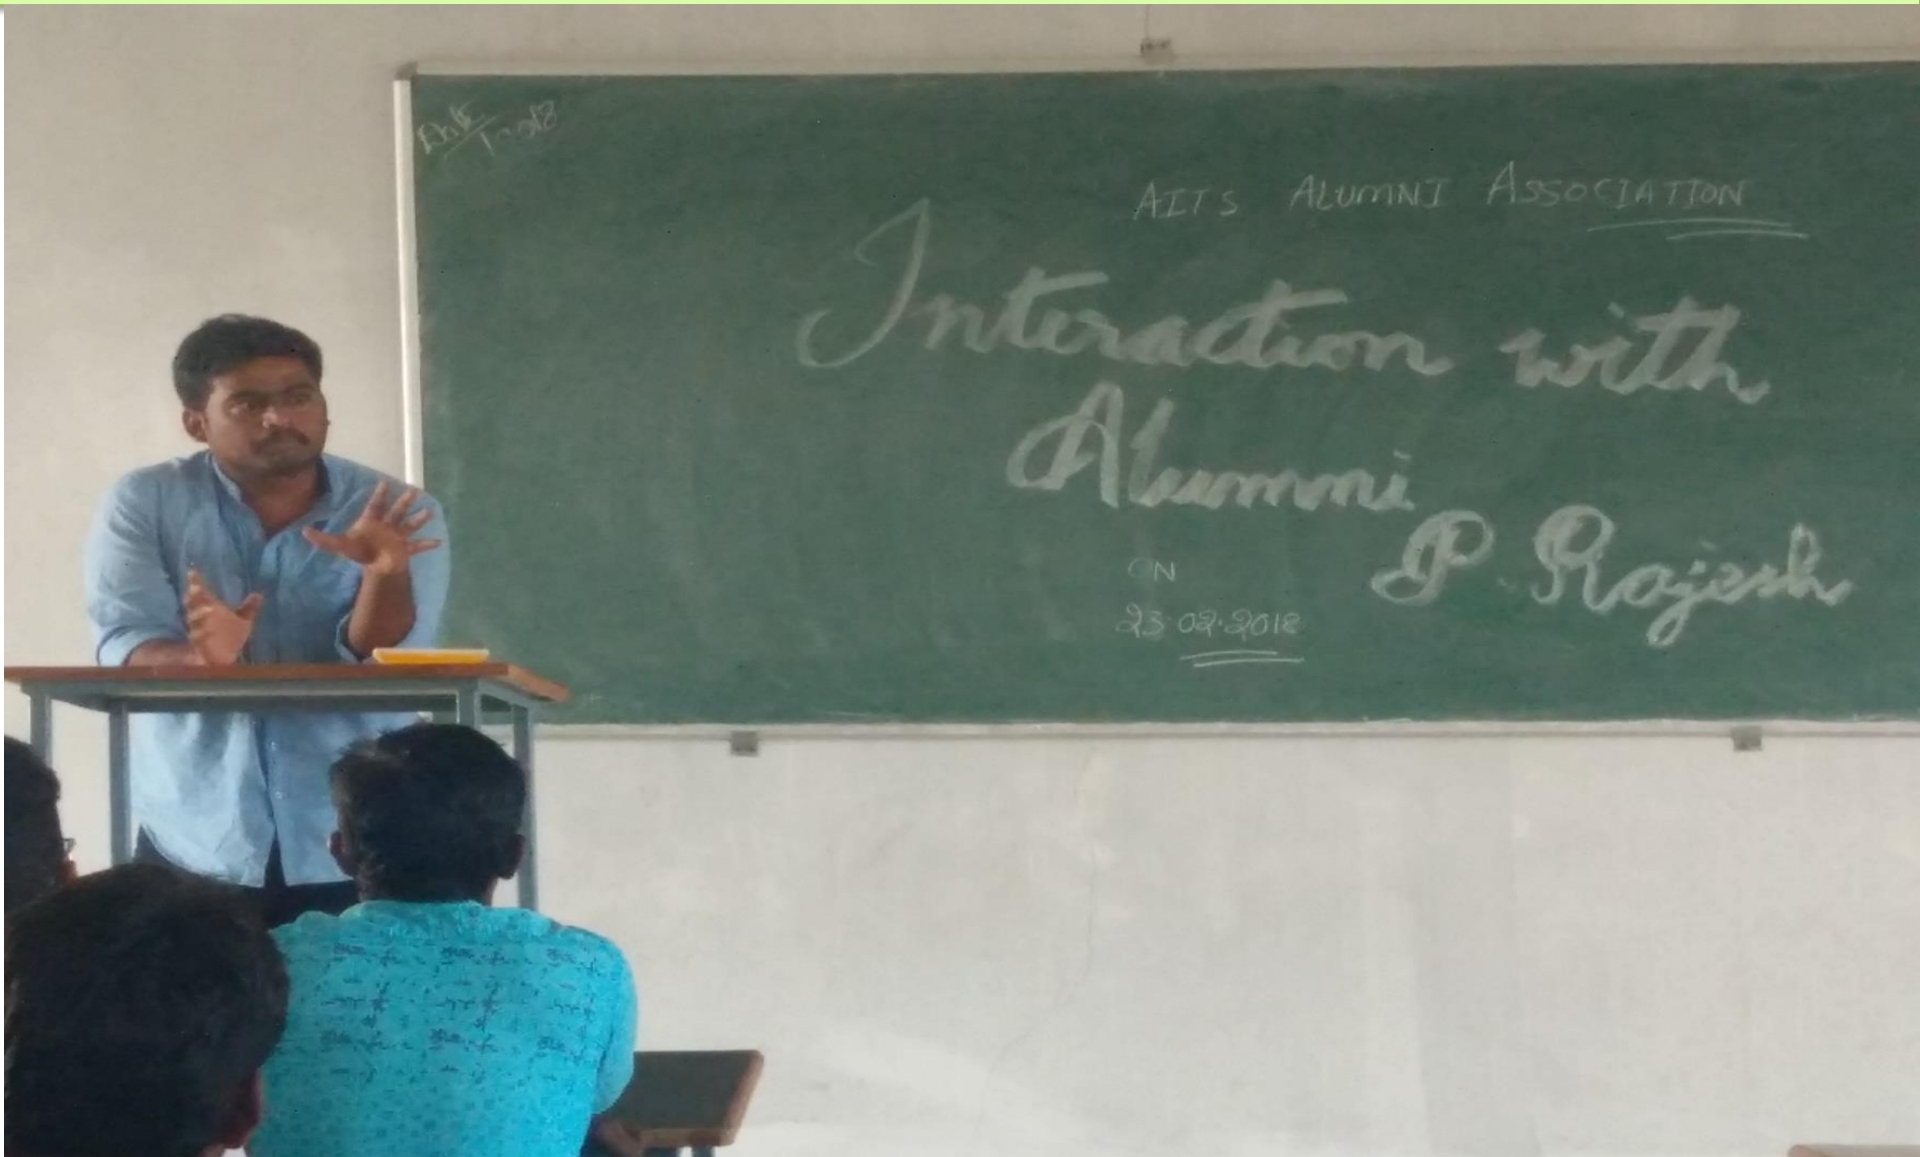 AITS ALUMNI ASSOCIATION
Interaction with
Alumni
P. Rajesh
ON
23.02.2018